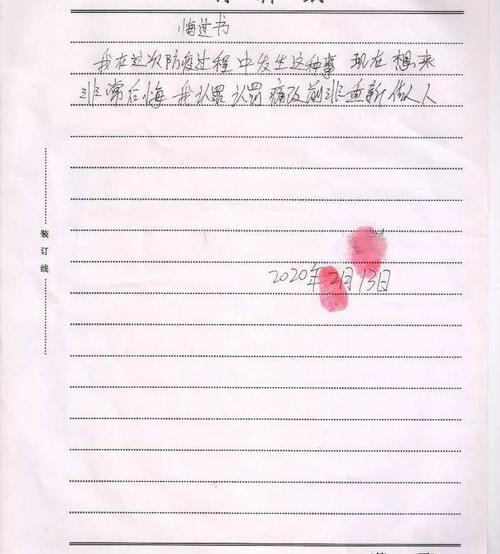 悔过书
我在这次防疫过程中发生这种事 现在想来
非常后悔 我认罪认罚 痛改前非重新做人
装订线
2020年2月13日